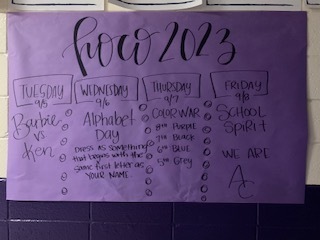 HOCO 2023
TUESDAY
9/5
Barbie
vs
Ken
WEDNESDAY
9/6
Alphabet
Day
DRESS AS something
that begins with the
same first letter as
YOUR NAME
THURSDAY
9/7
COLOR WAR
8TH PURPLE
7TH BLACK
6TH BLUE
5TH GREY
FRIDAY
9/8
SCHOOL
SPIRIT
WE ARE
AC